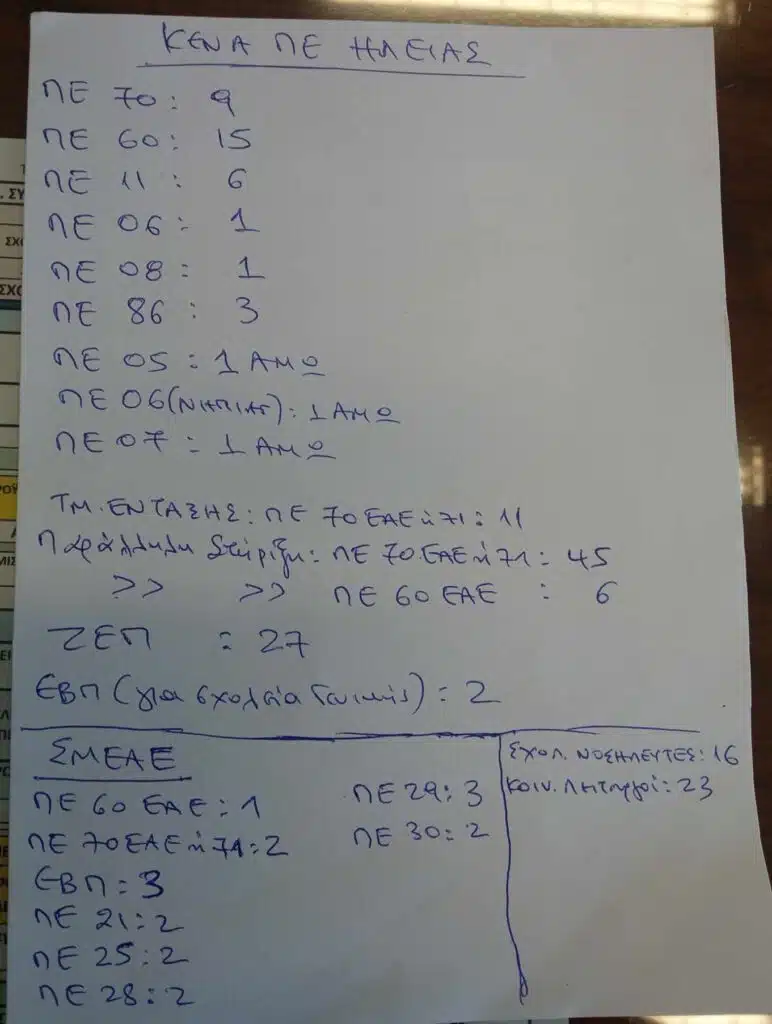 ΚΕΝΑ ΠΕ ΗΛΕΙΑΣ
ΠΕ 70: 9
ΠΕ 60: 15
ΠΕ 11: 6
ΠΕ 06: 1
ΠΕ 08: 1
ΠΕ 86: 3
ΠΕ 05: 1 ΑΜΩ
ΠΕ 06(ΝΗΠΙΑΓ): 1 ΑΜΩ
ΠΕ 07: 1 ΑΜΩ
ΤΜ. ΕΝΤΑΞΗΣ: ΠΕ 70 ΕΑΕ ή 71: 11
Παράλληλη Στήριξη: ΠΕ 70 ΕΑΕ ή 71: 45
>> >> ΠΕ 60 ΕΑΕ : 6
ΖΕΠ : 27
ΕΒΠ (για σχολεία Γενικής): 2
ΣΜΕΑΕ
ΠΕ 60 ΕΑΕ: 1
ΠΕ 70 ΕΑΕ ή 71: 2
ΕΒΠ: 3
ΠΕ 21: 2
ΠΕ 25: 2
ΠΕ 28: 2
ΠΕ 29: 3
ΠΕ 30: 2
ΣΧΟΛ. ΝΟΣΗΛΕΥΤΕΣ: 16
Κοιν. Λειτουργοί: 23